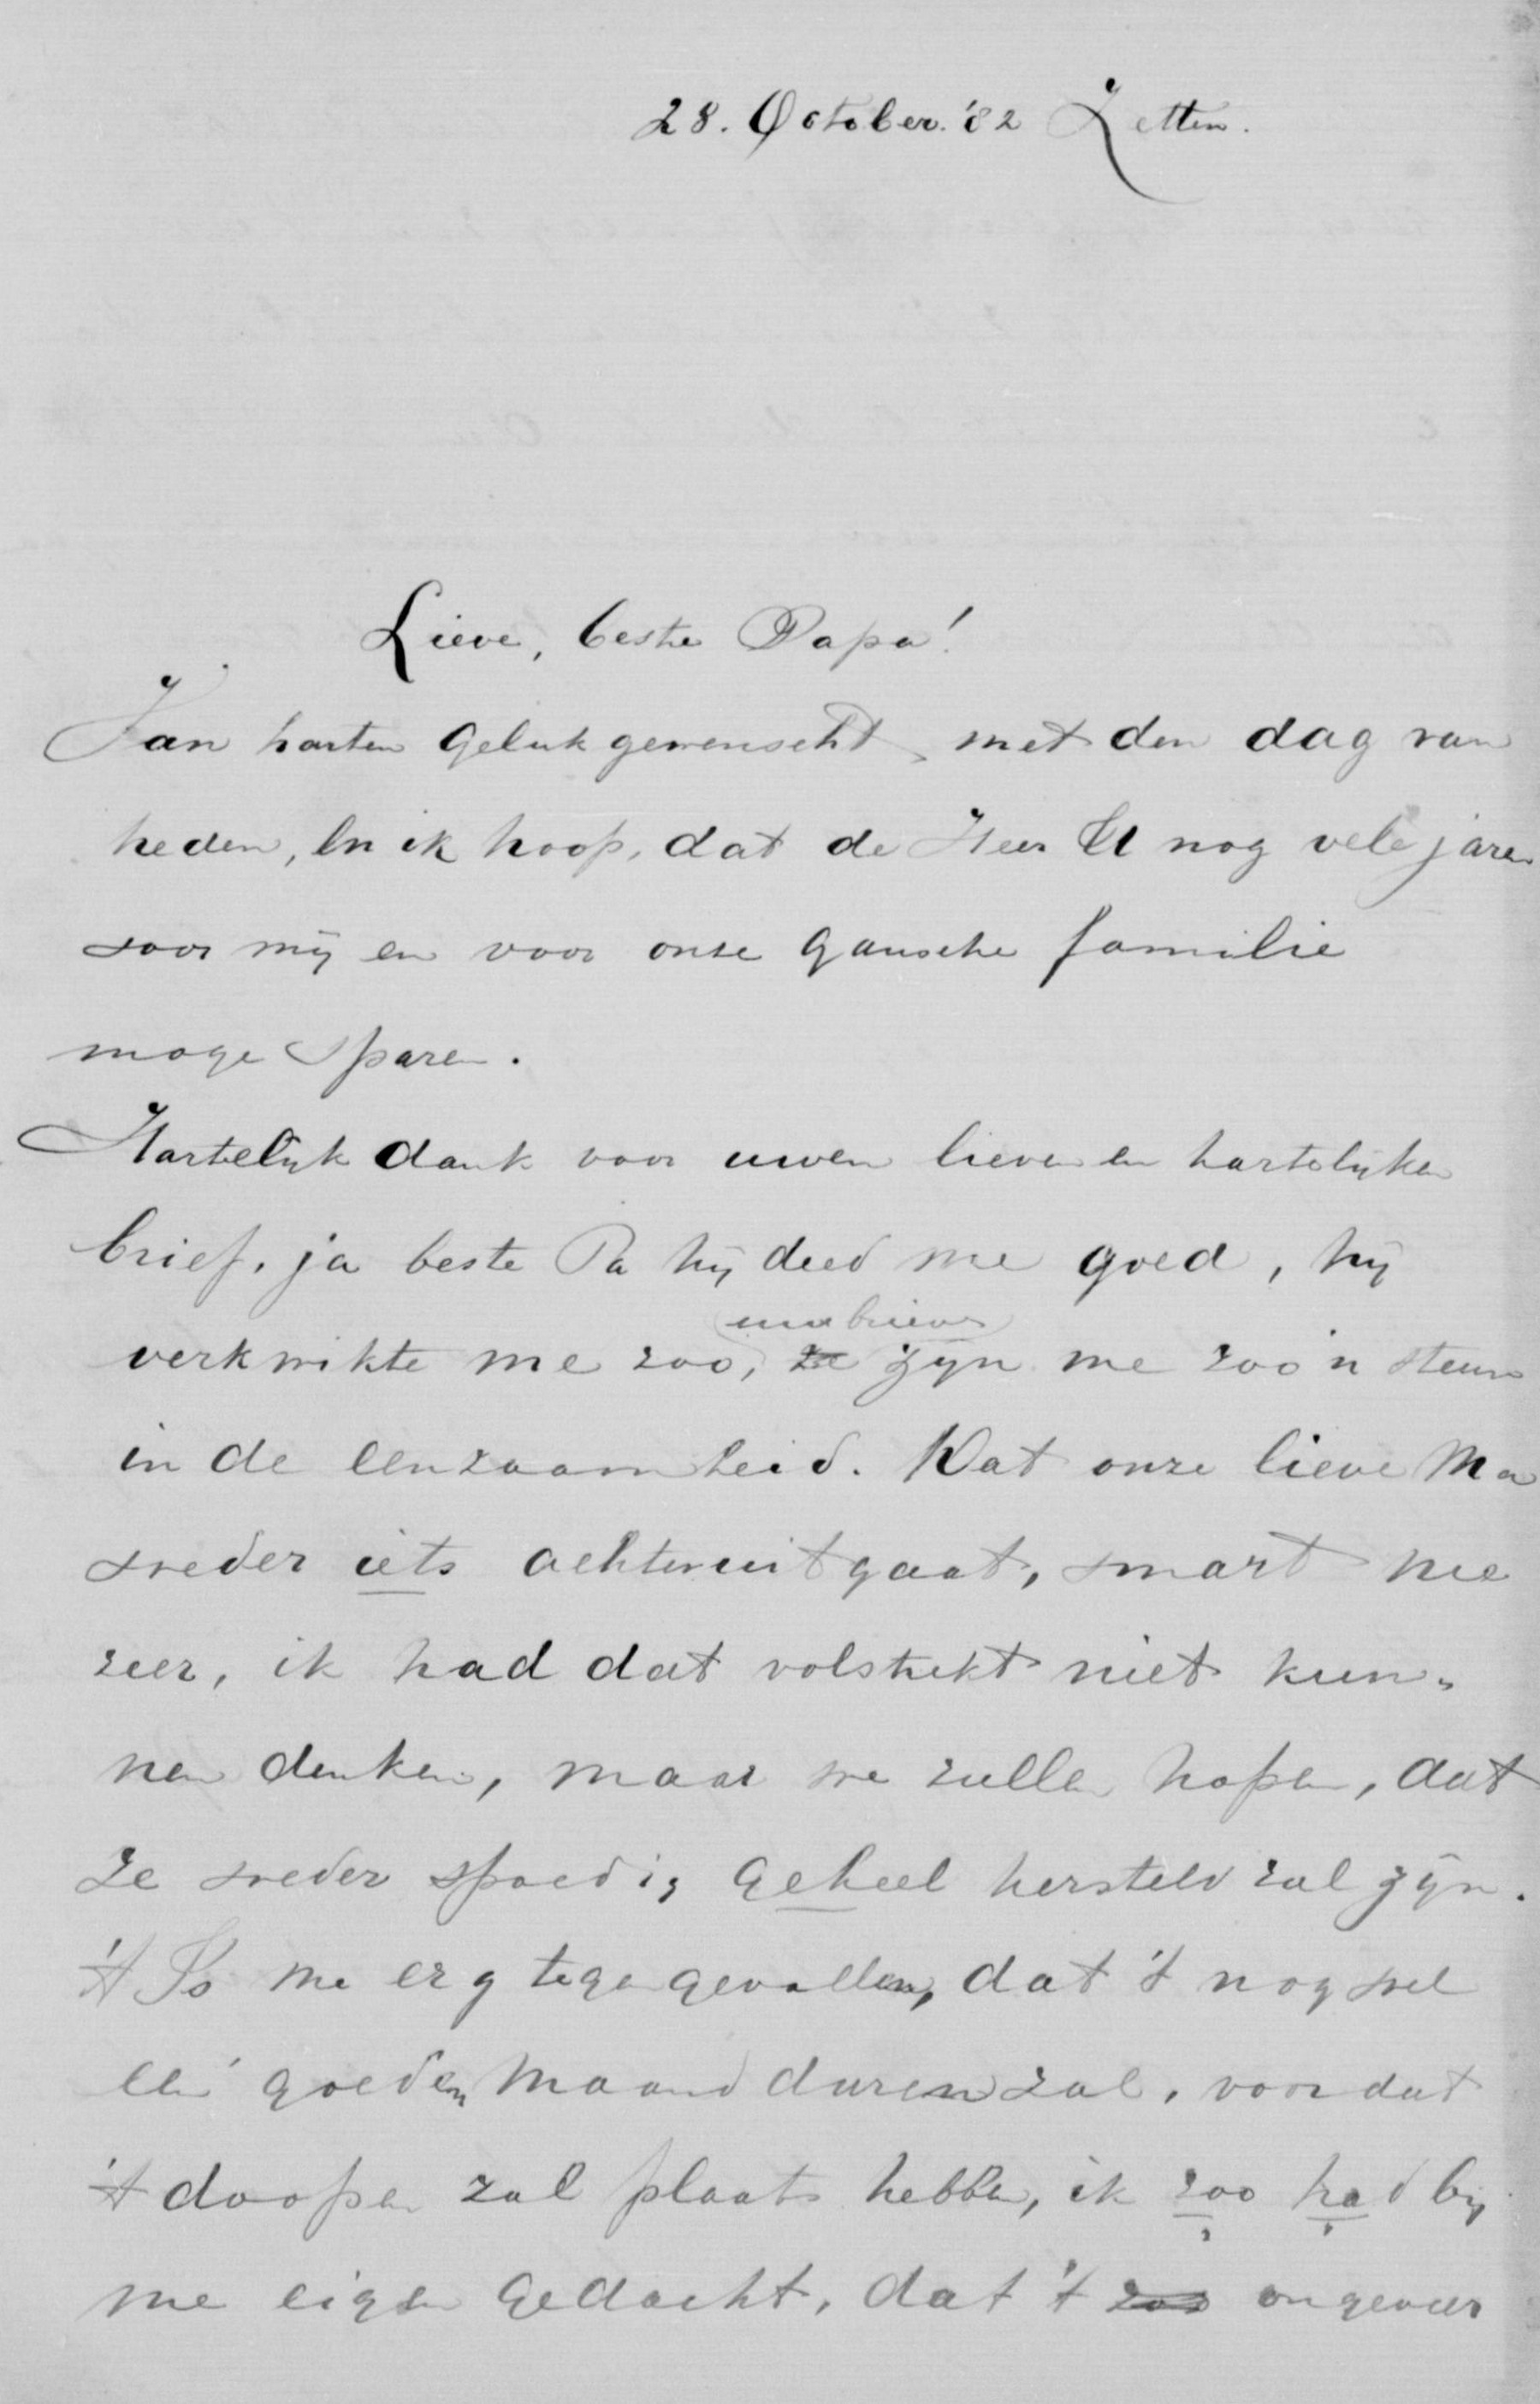 28. October. '82 Zetten.
Lieve, beste Papa!
Van harten gelukgewenscht, met den dag van
heden, en ik hoop, dat de Heer U nog vele jaren
voor mij en voor onze gansche familie
moge sparen.
Hartelijk dank voor uwen lieven en hartelijken
brief, ja beste Pa hij deed me goed, hij
uw brieven
verkwikte me zoo, ze zijn me zoo'n steun
in de eenzaamheid. Wat onze lieve Ma
weder iets achteruitgaat, smart me
zeer, ik had dat volstrekt niet kun-
nen denken, maar we zullen hopen, dat
ze weder spoedig geheel hersteld zal zijn.
't Is me erg tegengevallen, dat 't nog wel
een goeden maand duren zal, voordat
't doopen zal plaats hebben, ik zoo had bij
me eigen gedacht, dat 't zoo ongeveer